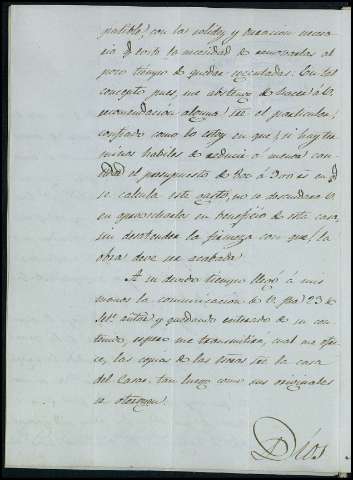 patible) con las solidez y duracion necesa-
ria pª evitar la necesidad de renovarlas al
poco tiempo de quedar egecutadas. En tal
concepto, pues, me abstengo de hacer á V.
recomendación alguna sre. el particular;
confiado como lo estoy en que, si hay ter-
minos habiles de reducir á menor can-
tidad el presupuesto de 800 á 900 rs en pf
se calcula este gasto, no se descuidará V.
en aprovecharlos en beneficio de esta casa,
sin desatender la firmeza con que la
obra deve ser acabada.
A su devido tiempo llegó á mis
manos la comunicacion de V. fha 23 de
Mzo anterr. y quedando enterado de su con-
tenido, espero me transmitirá, cual me ofre-
ce, las copias de las sre. la casa
del Casar, tan luego como sus originales
se otorguen.
Dios